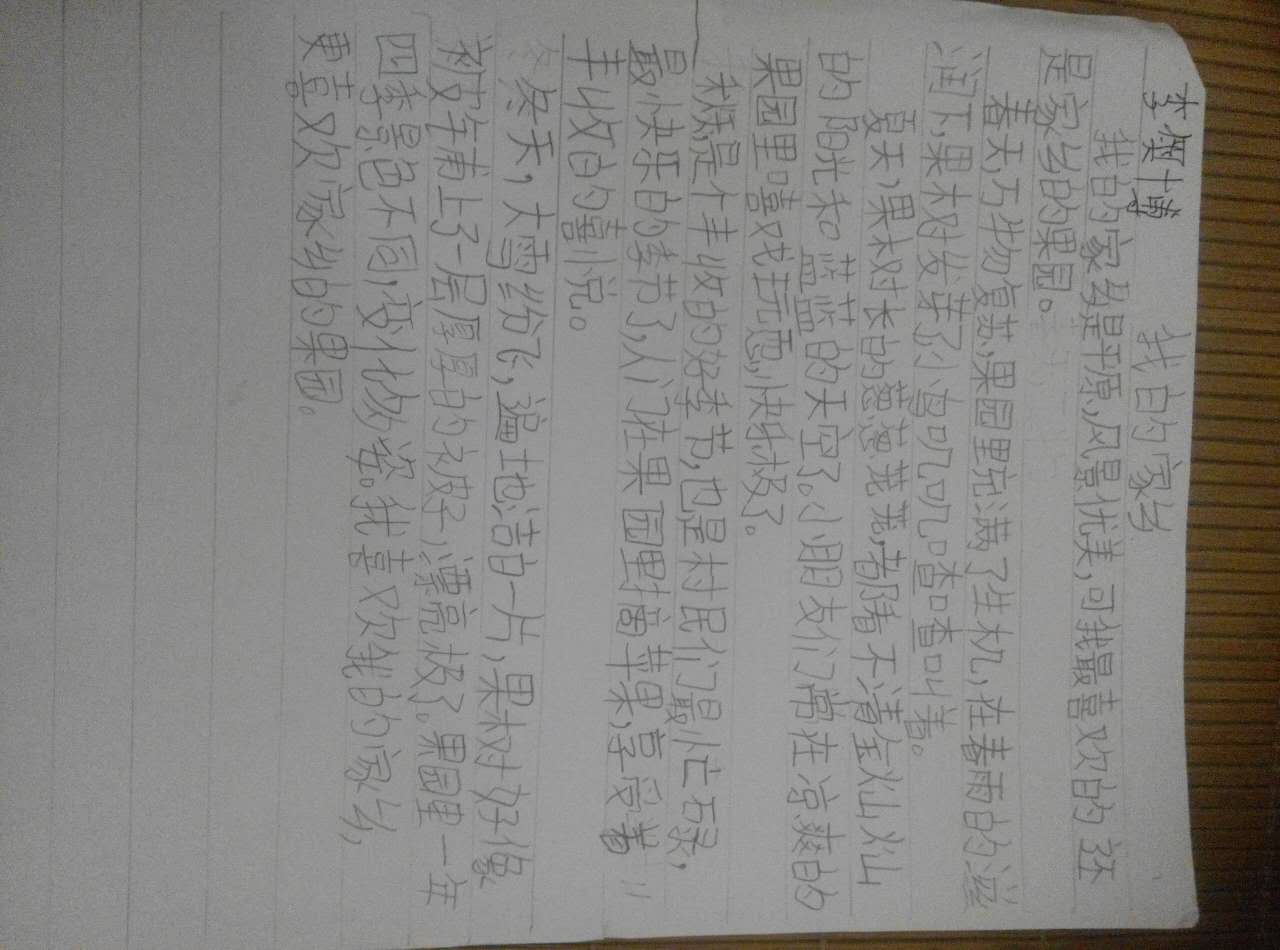 我的家乡
李燦博
我的家乡是平原,风景优美,可我最喜欢的还
是家乡的果园。
春天,万物复苏,果园里充满了生机,在春雨的滋
润下,果树发芽了,小鸟叽叽喳喳叫着。
夏天,果树长的葱葱茏茏,都看不清金灿灿
的阳光和蓝蓝的天空了。小朋友们常在凉爽的
果园里嘻戏玩耍,快乐极了。
秋天是个丰收的好季节,也是村民们最忙碌,
最快乐的季节了,人们在果园里摘苹果,享受着
丰收的喜悦。
冬天,大雪纷飞,遍地洁白一片,果树好像
被铺上了一层厚厚的被子,漂亮极了。果园里一年
四季景色不同,变化多姿。我喜欢我的家乡,
更喜欢家乡的果园。